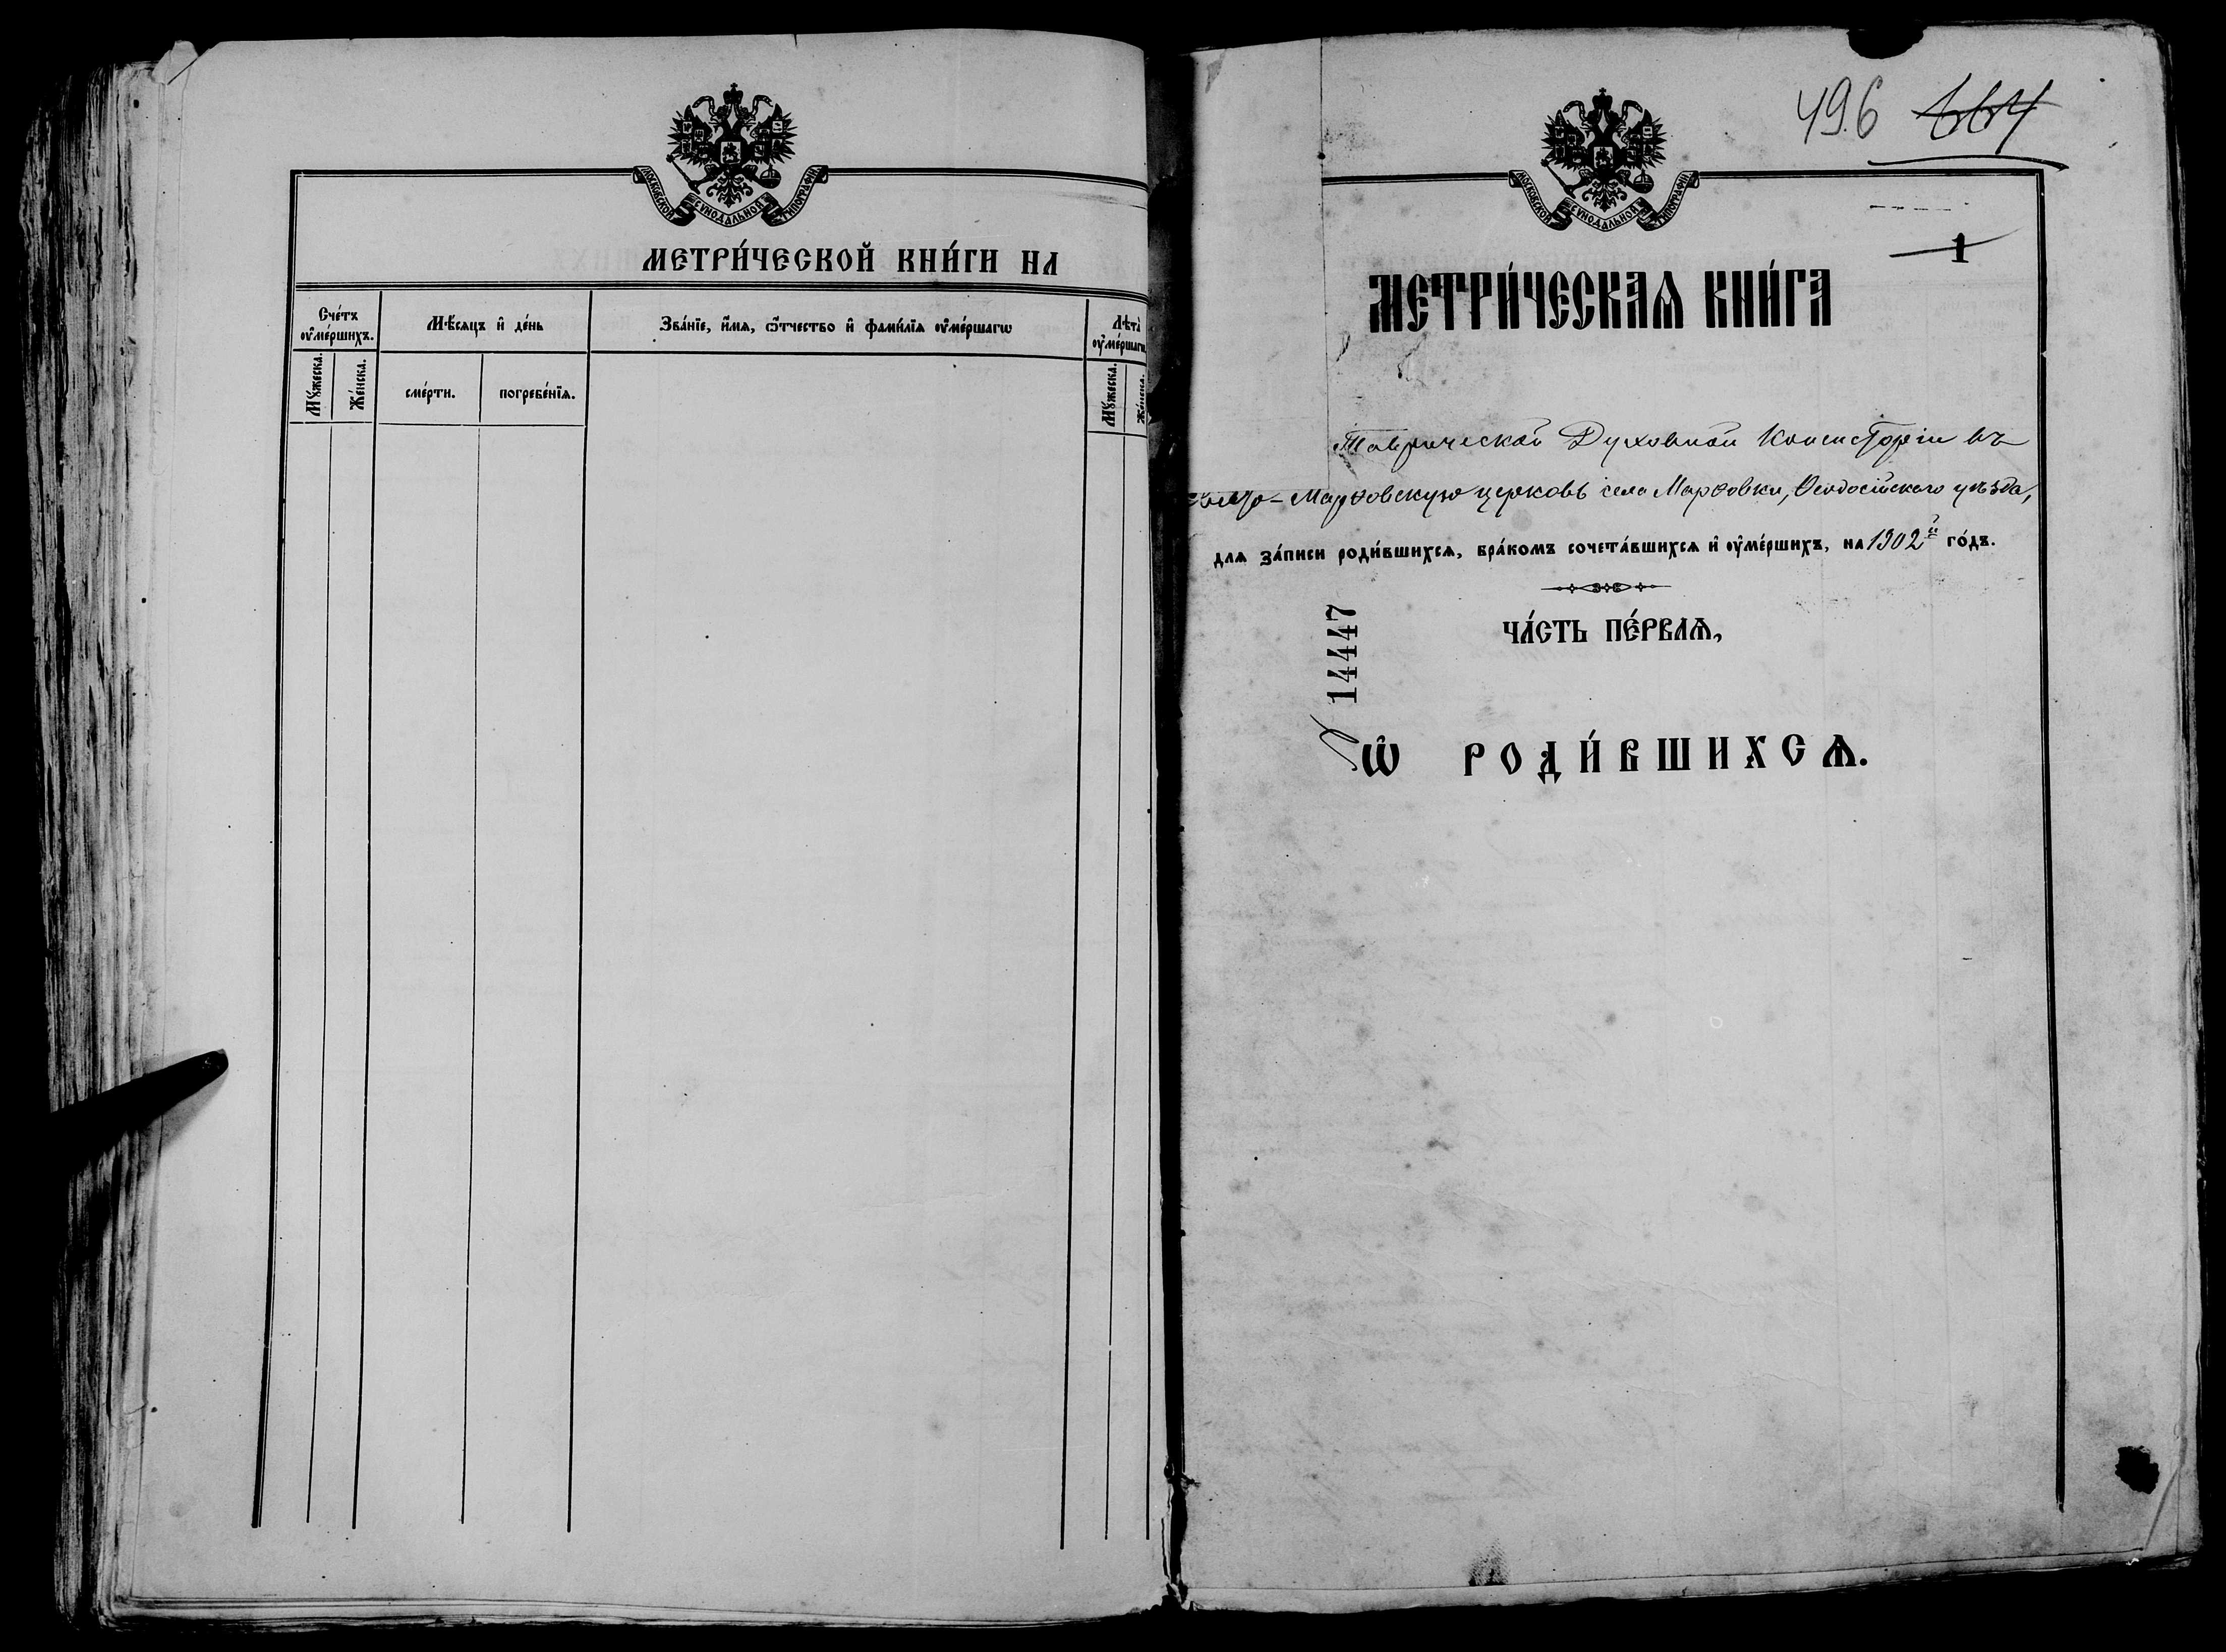 МОСКОВСКОЙ СѴНОДАЛЬНОЙ ТИПОГРАФІИ
МЕТРИ́ЧЕСКОЙ КНИ́ГИ НА
Сче́тъ ᲂу҆ме́ршихъ.
Мѣ́сяцъ и҆ де́нь
Зва́нїе, и҆́мѧ, ѻ҆́тчество и҆ фами́лїѧ ᲂу҆ме́ршагѡ
Лѣта̀ ᲂу҆ме́ршагѡ
Мꙋ́жеска.
Же́нска.
сме́рти.
погребе́нїѧ.
Мꙋ́жеска.
Же́нска.
496 664
МОСКОВСКОЙ СѴНОДАЛЬНОЙ ТИПОГРАФІИ
1
МЕТРИ́ЧЕСКАѦ КНИ́ГА
Таврической Духовной Консисторіи въ
Марковскую церковь села Марковки, Ѳеодосійскаго уѣзда,
для за́писи роди́вшихсѧ, бра́комъ сочета́вшихсѧ и҆ ᲂу҆ме́ршихъ, на 1902й го́дъ.
ЧА́СТЬ ПЕ́РВАѦ,
14447
Ѡ҆ РОДИ́ВШИХСѦ.